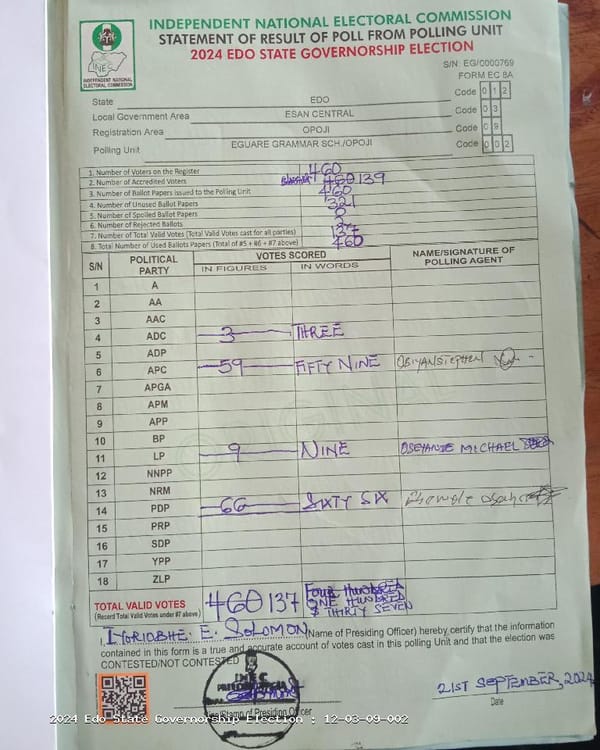 INDEPENDENT NATIONAL ELECTORAL COMMISSION
STATEMENT OF RESULT OF POLL FROM POLLING UNIT
2024 EDO STATE GOVERNORSHIP ELECTION
INEC
INDEPENDENT NATIONAL ELECTORAL COMMISSION
S/N: EG/0000769
FORM EC 8A
State EDO Code 0 1 2
Local Government Area ESAN CENTRAL Code 0 3
Registration Area OPOJI Code 0 9
Polling Unit EGUARE GRAMMAR SCH./OPOJI Code 0 0 2
1. Number of Voters on the Register 460
2. Number of Accredited Voters 460 139
3. Number of Ballot Papers issued to the Polling Unit 460
4. Number of Unused Ballot Papers 321
5. Number of Spoiled Ballot Papers 0
6. Number of Rejected Ballots 2
7. Number of Total Valid Votes (Total Valid Votes cast for all parties) 137
8. Total Number of Used Ballots Papers (Total of #5 + #6 + #7 above) 460
S/N POLITICAL PARTY VOTES SCORED NAME/SIGNATURE OF POLLING AGENT
IN FIGURES IN WORDS
1 A
2 AA
3 AAC
4 ADC 3 THREE
5 ADP
6 APC 59 FIFTY NINE OBIYAN STEPHEN
7 APGA
8 APM
9 APP
10 BP
11 LP 9 NINE MICHAEL
12 NNPP
13 NRM
14 PDP 66 SIXTY SIX
15 PRP
16 SDP
17 YPP
18 ZLP
TOTAL VALID VOTES 460 137 FOUR HUNDRED
(Record Total Valid Votes under #7 above) ONE HUNDRED
& THIRTY SEVEN
I, E. SOLOMON (Name of Presiding Officer) hereby certify that the information
contained in this form is a true and accurate account of votes cast in this polling Unit and that the election was
CONTESTED/NOT CONTESTED
INEC
21ST SEPTEMBER, 2024
Sign/Stamp of Presiding Officer Date
2024 Edo State Governorship Election : 12-03-09-002